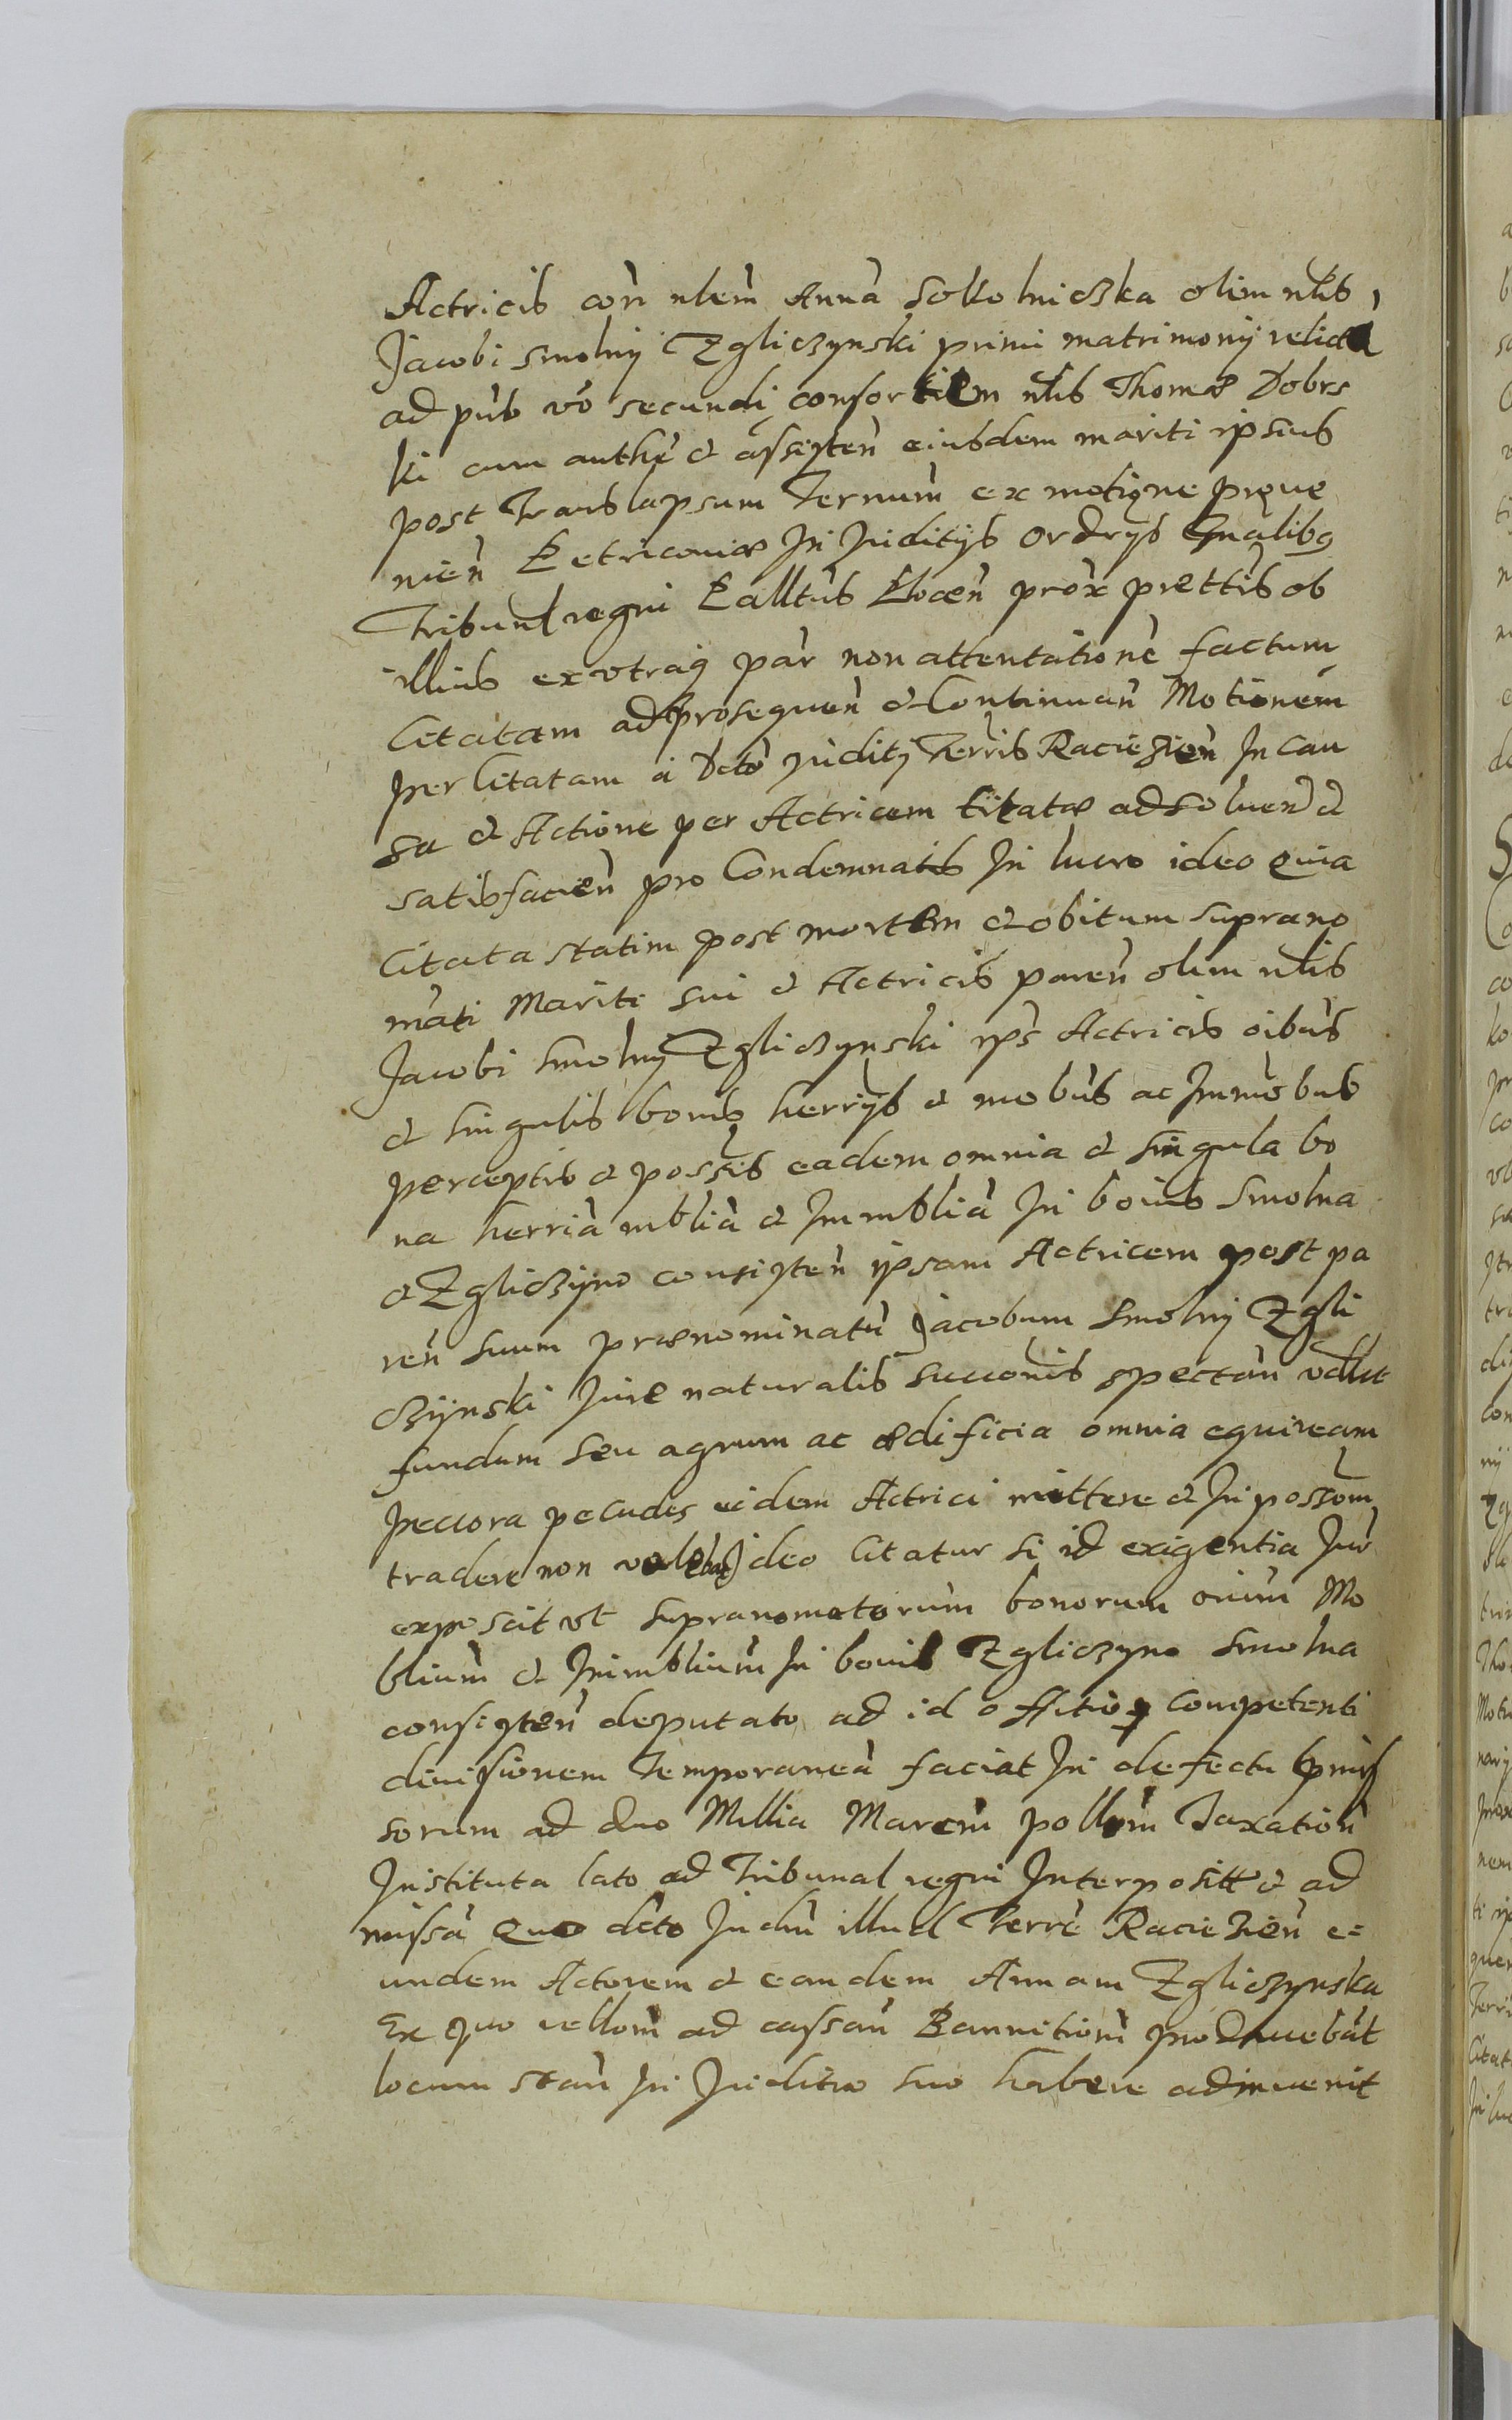 Actricis con nlem Anna Sokolniczka olim nlis
Jacobi Smolny Zgliczynski primi matrimonij relicta
ad pns vo secundi consortem nlis Thomæ Dobrs
ki cum authe et assisten eiusdem mariti ipsius
post Translapsum Ternum ex motione preue
nien Petricouiæ In Juditijs Ordrijs Gnalibs
Tribunl regni Palltus Plocen prox prettis ob
illius ex vtraq par non attentatione factum
Citatam ad prosequen et Continuan Motionem
per Citatam a Dcto Juditij Terris Raciezien In Cau
sa et Actione per Actricem Citatæ ad soluen et
satisfacien pro Condemnatis In lucro ideo quia
Citata statim post mortem et obitum suprano
mati Mariti sui et Actricis paren olim nlis
Jacobi Smolny Zgliczynski ips Actricis oibus
et singulis bonis herrijs et mobus ac Immobus
perceptis et possis eadem omnia et singula bo
na herria mblia et Immblia In bonis Smolna
et Zgliczyno consisten ipsam Actricem post pa
ren suum prænominatu Jacobum Smolny Zgli
czynski Jure naturalis succonis spectan vdlut
fundum seu agrum ac ædificia omnia equiream
peccora pecudes eidem Actrici mittere et In possom
tradere non volebat ideo Citatur si id exigentia Jur
exposcit vt supranomatorum bonorum oium Mo
blium et Immblium In bonis Zgliczyno Smolna
consisten deputato ad id offitio competenti
diuisionem Temporanea faciat In defectu
sorum ad duo Millia Marcm pollum Taxation
Instituta lato ad Tribunal regni Interpositt et ad
missa quo dcto Judm illud Terre Raciezien e=
undem Actorem et eandem Annam Zgliczynska
Ex quo vellom ad cassan Bannitiom producebat
locum stan In Juditio suo habere adinuenit